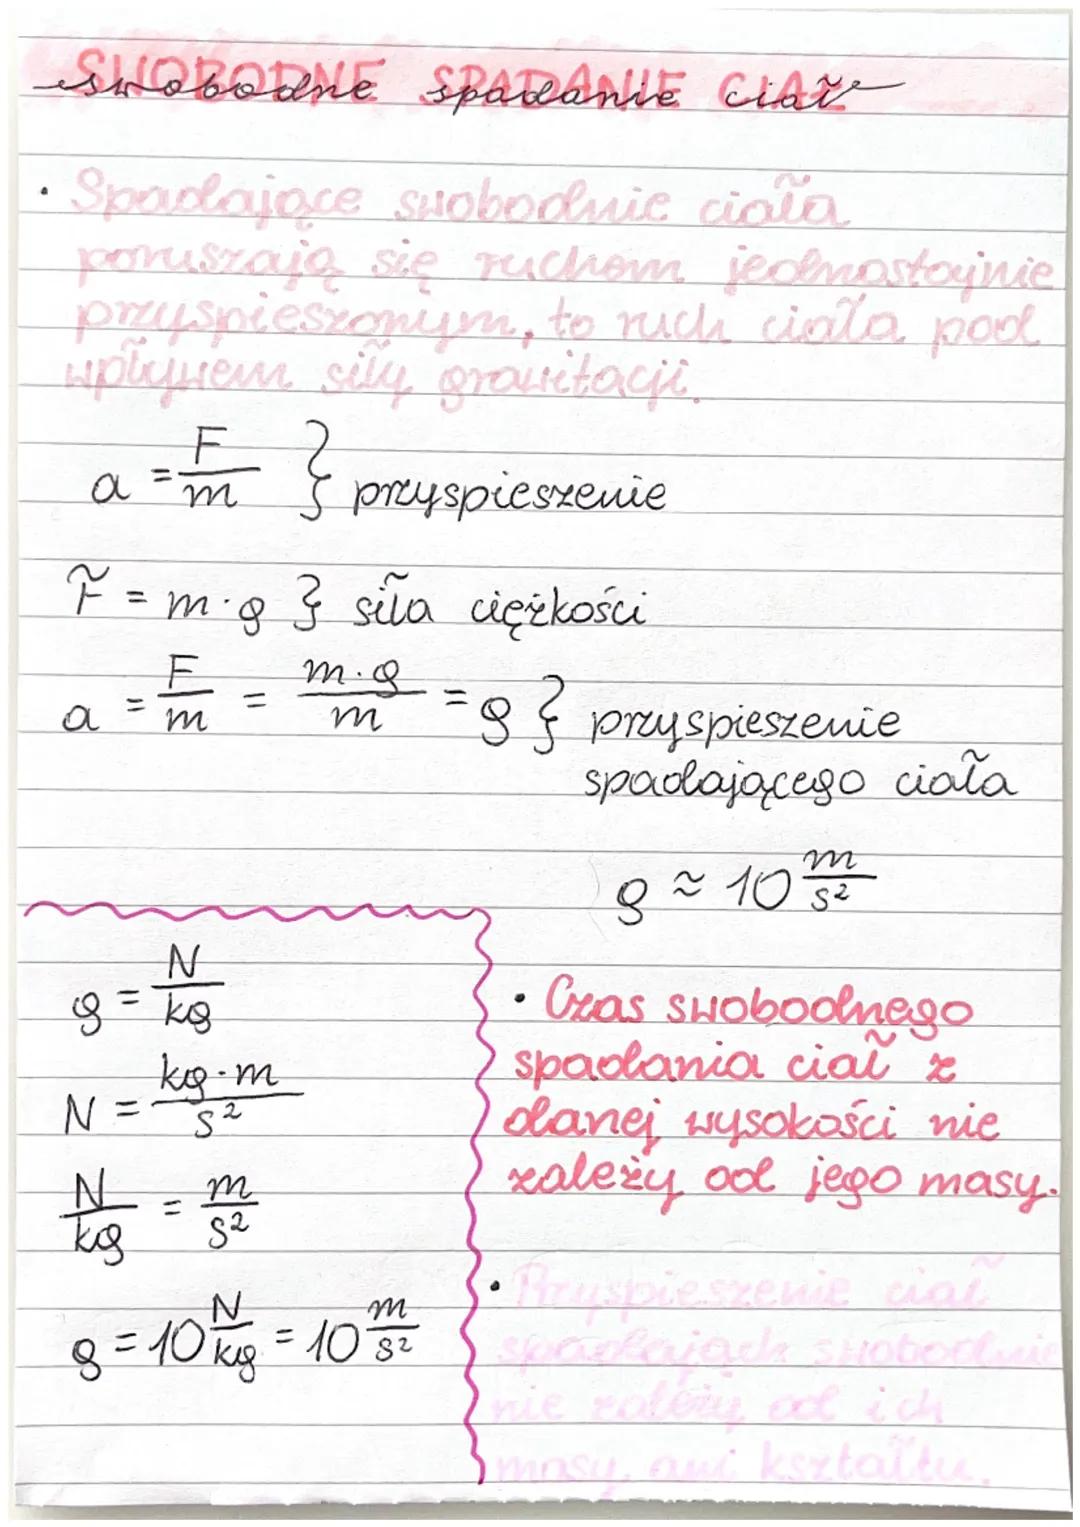 SWOBODNE SPADANIE CIAŁ
swobodne spadanie ciał
• Spadające swobodnie ciała
poruszają się ruchem jednostajnie
przyspieszonym, to ruch ciała pod
wpływem siły grawitacji.
a = F/m } przyspieszenie
F = m·g } siła ciężkości
a = F/m = m·g/m = g } przyspieszenie
spadającego ciała
g ≈ 10 m/s²
g = N/kg
N = kg·m/s²
N/kg = m/s²
g = 10 N/kg = 10 m/s²
• Czas swobodnego
spadania ciał z
danej wysokości nie
zależy od jego masy.
• Przyspieszenie ciał
spadających swobodnie
nie zależy od ich
masy, ani kształtu.